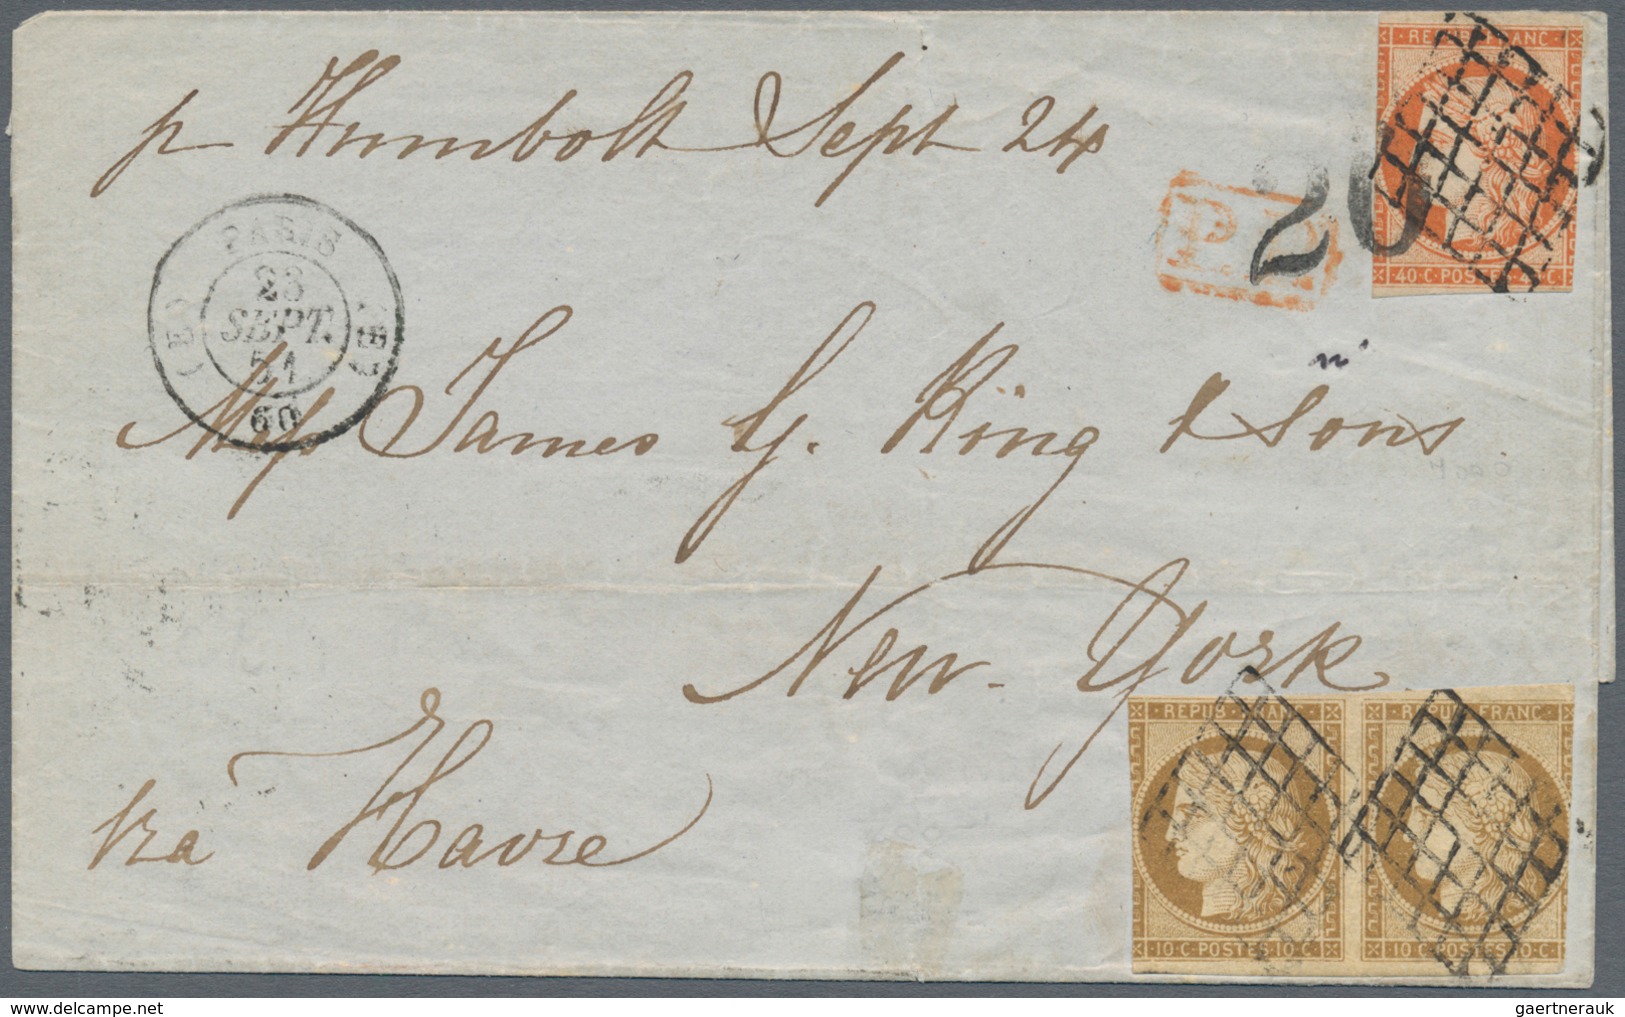 p Humbolt Sept 24
REPUB FRANC
40·C·POSTES·40·C
20
P.P.
PARIS
(E) (E)
23
SEPT.
51
60
Mess James G. King & Sons
New-York
via Havre
REPUB FRANC
10·C·POSTES·10·C
REPUB FRANC
10·C·POSTES·10·C
gaertnerauk @ delcampe.net